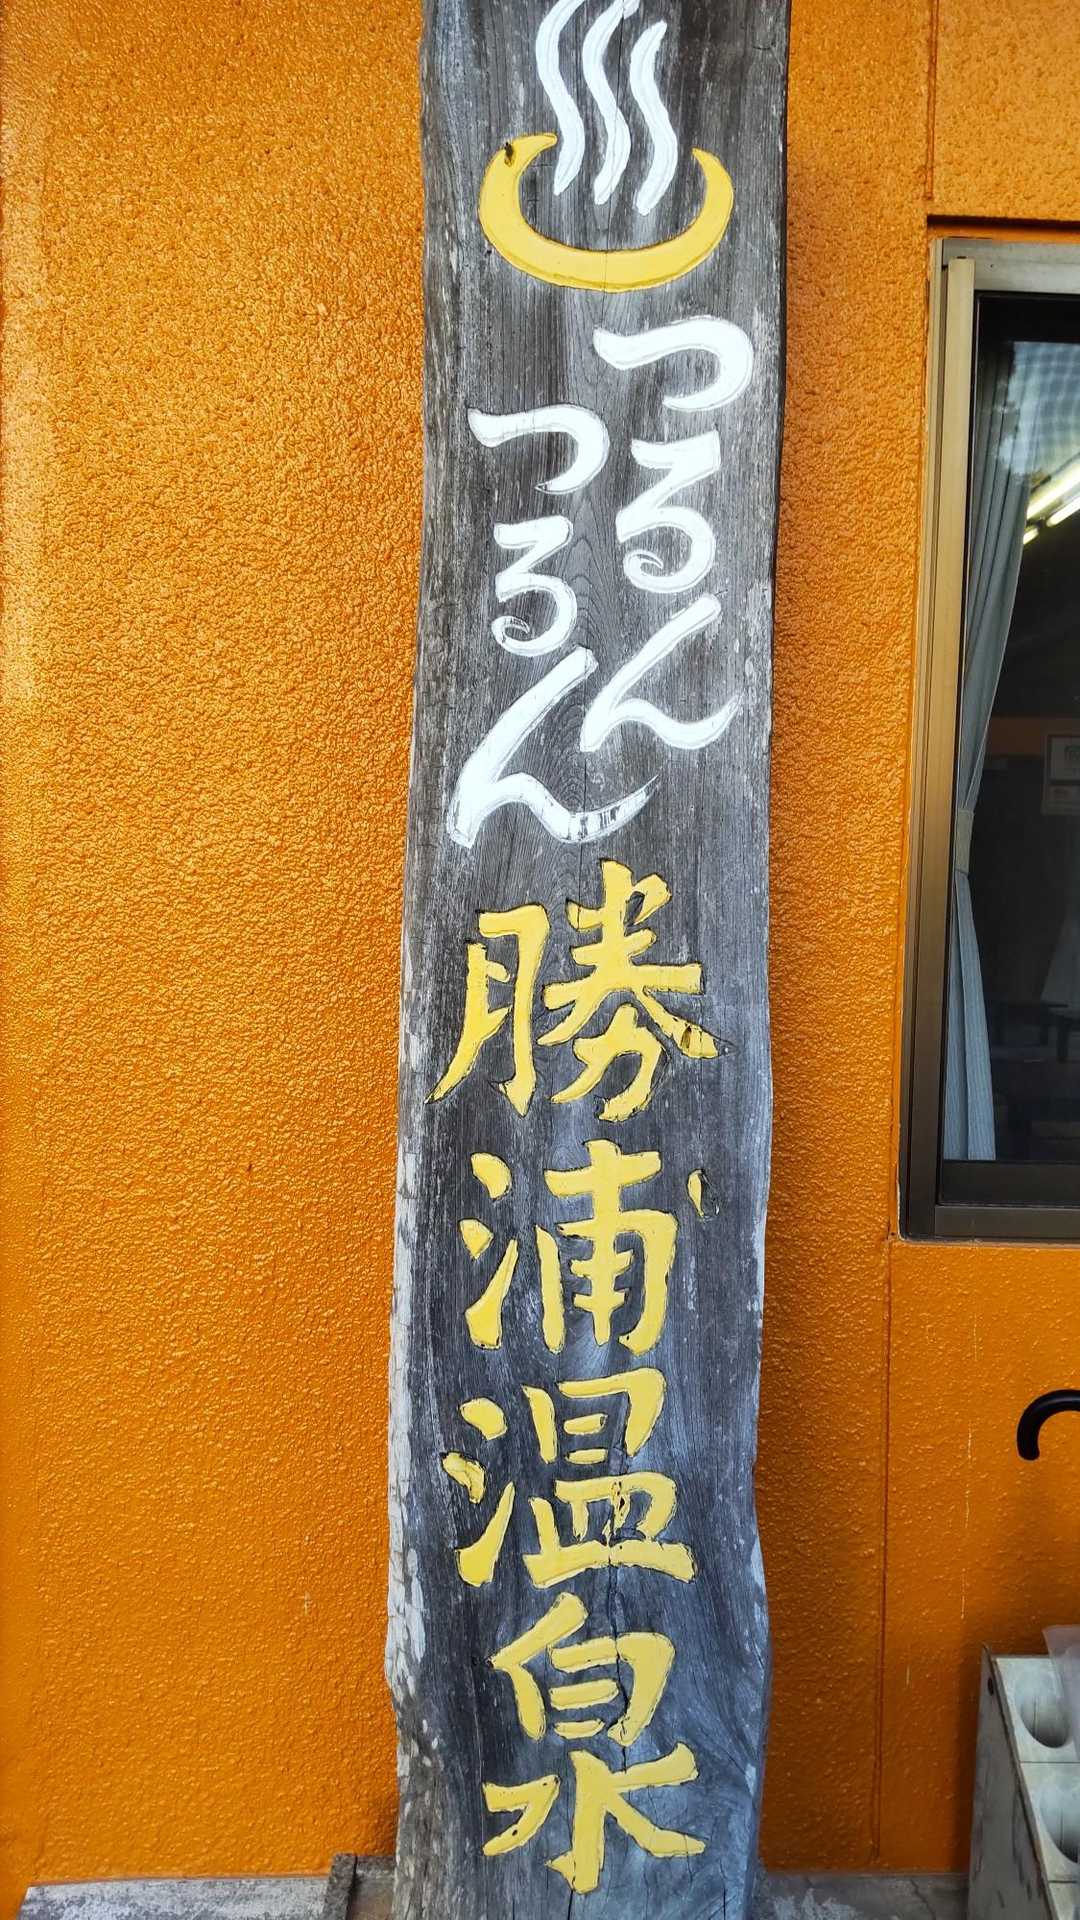 つるん
つるん
勝浦温泉